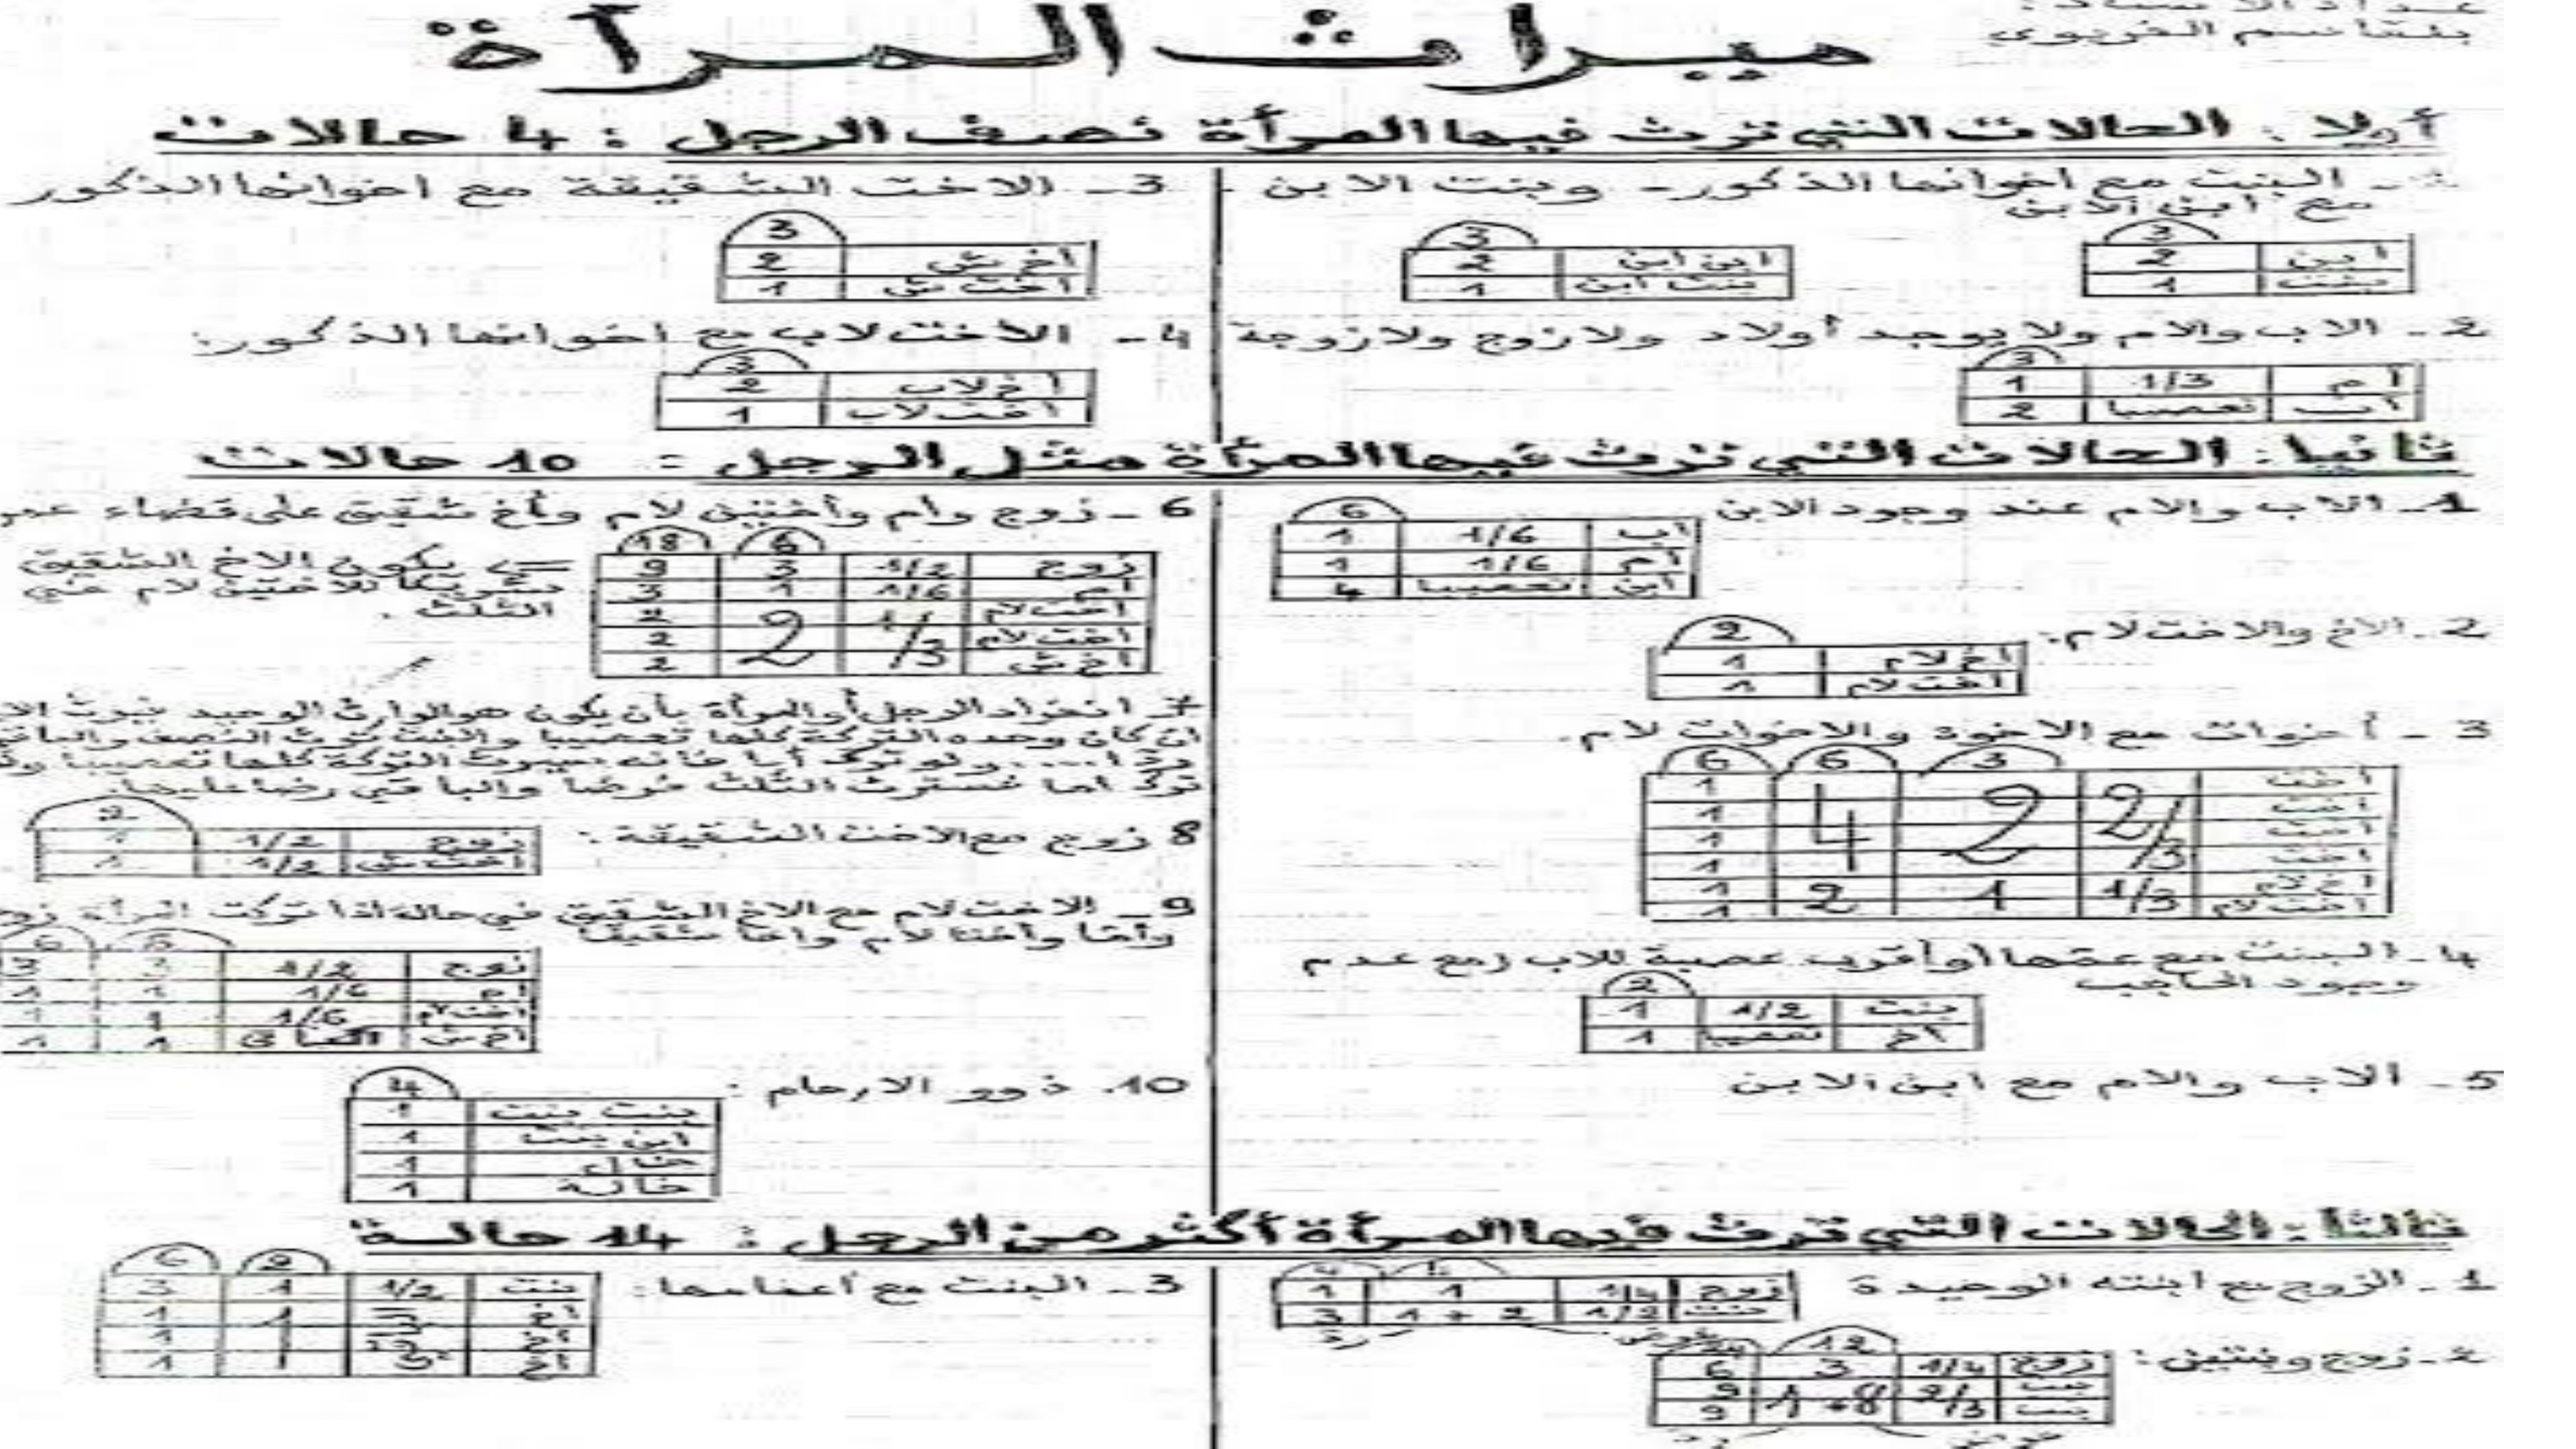 بلقاسم الغريوي
ميراث المرأة
أولا: الحالات التي ترث فيها المرأة نصف الرجل: 4 حالات
البنت مع اخوانها الذكور - وبنت الابن
مع ابن الابن
3
ابن 2
بنت 1
3
ابن ابن 2
بنت ابن 1
2- الاب والام ولا يوجد أولاد ولا زوج ولا زوجة
3
ام 1/3 1
اب تعصيبا 2
3- الاخت الشقيقة مع اخوانها الذكور
3
اخ ش 2
اخت ش 1
4- الاخت لاب مع اخوانها الذكور:
3
اخ لاب 2
اخت لاب 1
ثانيا: الحالات التي ترث فيها المرأة مثل الرجل: 10 حالات
1- الاب والام عند وجود الابن
6
اب 1/6 1
ام 1/6 1
ابن تعصيبا 4
2- الاخ والاخت لام:
2
اخ لام 1
اخت لام 1
3- أخوات مع الاخوة والاخوات لام.
3 6 6
اخت 2/3 2 4 1
اخت 1
اخت 1
اخت 1
اخ لام 1/3 1 2 1
اخت لام 1
4- البنت مع عمها أو أقرب عصبة للاب (مع عدم
وجود الحاجب
2
بنت 1/2 1
اخ تعصيبا 1
5- الاب والام مع ابن الابن
6- زوج وام وأختين لام وأخ شقيق على قضاء عمر
6 18
زوج 1/2 3 9
ام 1/6 1 3
اخت لام 1/3 2 2
اخت لام 2
اخ ش 2
=> يكون الاخ الشقيق
شريكا للاختين لام في
الثلث.
7- انفراد الرجل أو المرأة بأن يكون هو الوارث الوحيد فيرث
ان كان وحده التركة كلها تعصيبا والبنت ترث النصف والباقي
ردا .... ولو ترك أبا فانه سيرث التركة كلها تعصيبا
ترك اما فسترث الثلث فرضا والباقي ردا عليها.
8 زوج مع الاخت الشقيقة:
2
زوج 1/2 1
اخت ش 1/2 1
9- الاخت لام مع الاخ الشقيق في حالة اذا تركت المرأة
وأما وأختا لام وأخا شقيقا
6
زوج 1/2 3 3
ام 1/6 1 1
اخت لام 1/6 1 1
اخ ش الباقي 1 1
10. ذوو الارحام:
4
بنت بنت 1
ابن بنت 1
خال 1
خالة 1
ثالثا: الحالات التي ترث فيها المرأة أكثر من الرجل: 14 حالة
1- الزوج مع ابنته الوحيدة
4
زوج 1/4 1 1
بنت 1/2 2 + 1 3
رد
2- زوج وبنتين:
12
زوج 1/4 3 6
بنت 2/3 8+1 9
بنت 9
3- البنت مع أعمامها:
2 6
بنت 1/2 1 3
اخ 1 1
اخ 1
اخ 1